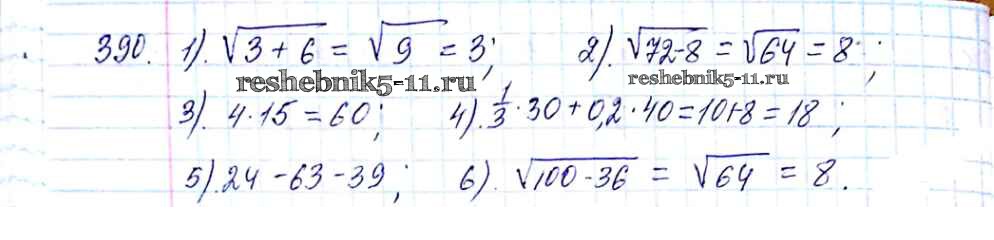 390. 1). √(3 + 6) = √9 = 3; 2). √(72-8) = √64 = 8;
reshebnik5-11.ru reshebnik5-11.ru
3). 4·15 = 60; 4). 1/3 · 30 + 0,2 · 40 = 10+8 = 18;
5). 24 - 63 - 39; 6). √(100-36) = √64 = 8.